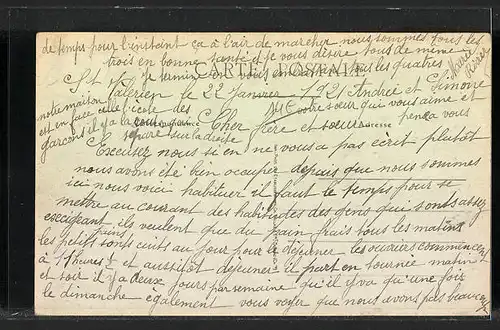 de temps pour l'instant ça à l'air de marcher nous sommes tous les
trois en bonne santé et je vous désire tous de même
je termine en vous embrassant tous les quatres
CARTE POSTALE
St Valerien le 22 Janvier 1921 Andrée et Simone
notre maison
et en face celle l'école des
garçons il y a la cour
sépare sur la droite
votre sœur qui vous aime et
pense à vous
Cher frère et sœur
Adresse
Excusez nous si en ne vous a pas écrit plutôt
nous avons été bien occuper depuis que nous sommes
ici nous voici habituer il faut le temps pour se
mettre au courant des habitudes des gens qui sont assez
exigeant ils veulent que du pain frais tous les matins
les petits pains sont cuits au jour pour le déjeuner les ouvriers commencent
à 7 heures et aussitôt déjeuner il part en tournée matin
et soir il y a deux jours par semaine qu'il y va qu'une fois
le dimanche également vous voyez que nous avons pas beaucoup